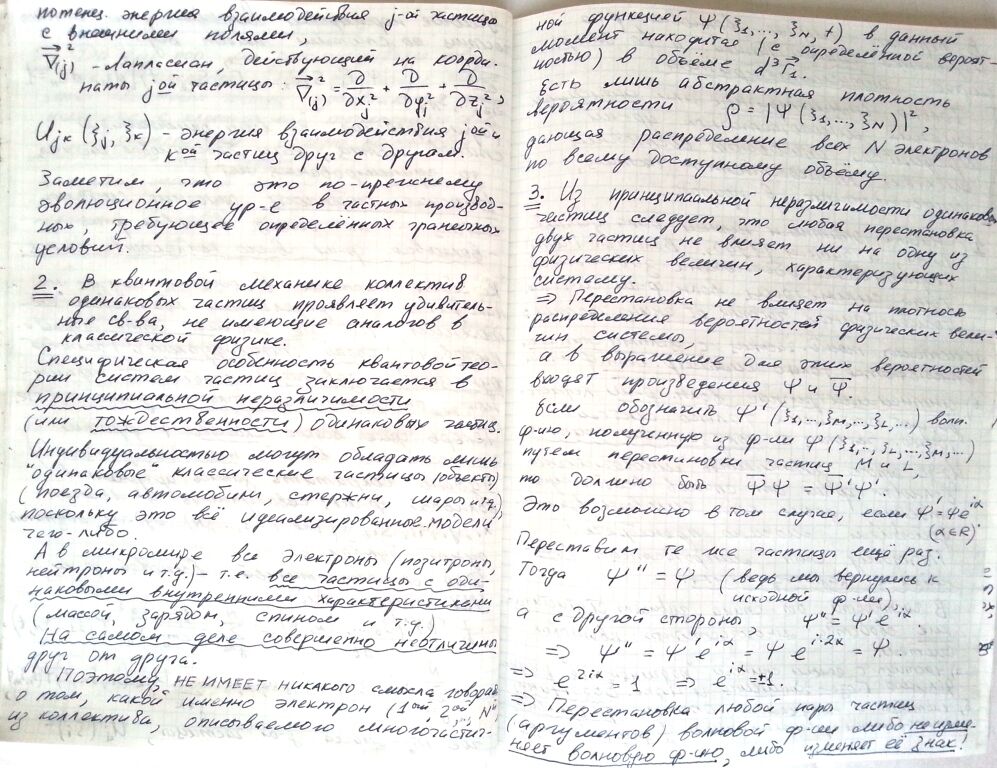 потенц. энергия взаимодействия j-ой частицы
с внешними полями,
∇⃗²(j) - лапласиан, действующий на коорди-
наты jой частицы: ∇⃗²(j) = ∂/∂x²j + ∂/∂y²j + ∂/∂z²j ,
Ujk (ξj, ξk) - энергия взаимодействия jой и
kой частиц друг с другом.
Заметим, что это по-прежнему
эволюционное ур-е в частных производ-
ных, требующее определённых граничных
условий.
2. В квантовой механике коллектив
одинаковых частиц проявляет удивитель-
ные св-ва, не имеющие аналогов в
классической физике.
Специфическая особенность квантовой тео-
рии систем частиц заключается в
принципиальной неразличимости
(или тождественности) одинаковых частиц.
Индивидуальностью могут обладать лишь
"одинаковые" классические частицы (объекты)
(поезда, автомобили, стержни, шары и т.д.),
поскольку это всё идеализированные модели
чего-либо.
А в микромире все электроны (позитроны,
нейтроны и т.д.) – т.е. все частицы с оди-
наковыми внутренними характеристиками
(массой, зарядом, спином и т.д.)
На самом деле совершенно неотличимы
друг от друга.
Поэтому НЕ ИМЕЕТ никакого смысла говорить
о том, какой именно электрон (1ой, 2ой,.., Nй)
из коллектива, описываемого многочастич-
ной функцией Ψ (ξ1,..., ξN, t) в данный
момент находится (с определённой вероят-
ностью) в объёме d³r⃗1.
Есть лишь абстрактная плотность
вероятности ρ = |Ψ (ξ1,..., ξN)|²,
дающая распределение всех N электронов
по всему доступному объёму.
3. Из принципиальной неразличимости одинаковых
частиц следует, что любая перестановка
двух частиц не влияет ни на одну из
физических величин, характеризующих
систему.
⇒ Перестановка не влияет на плотность
распределения вероятностей физических вели-
чин системы,
а в выражение для этих вероятностей
входят произведения Ψ и Ψ̅.
Если обозначить Ψ' (ξ1,...,ξM,...,ξL,...) волн.
ф-ию, полученную из ф-ии Ψ (ξ1,...,ξL,...,ξM,...)
путём перестановки частиц M и L,
то должно быть Ψ̅Ψ = Ψ̅'Ψ'.
Это возможно в том случае, если Ψ' = Ψe^{iα}
(α∈R).
Переставим те же частицы ещё раз.
Тогда Ψ'' = Ψ (ведь мы вернулись к
исходной ф-ии),
а с другой стороны, Ψ'' = Ψ'e^{iα}.
⇒ Ψ'' = Ψ' e^{iα} = Ψ e^{i·2α} = Ψ.
⇒ e^{2iα} = 1 ⇒ e^{iα} = ±1.
⇒ Перестановка любой пары частиц
(аргументов) волновой ф-ии либо не изме-
няет волновую ф-ию, либо изменяет её знак!